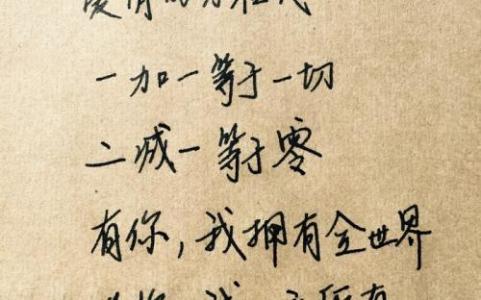 爱情的方程式
一加一等于一切
二减一等于零
有你，我拥有全世界